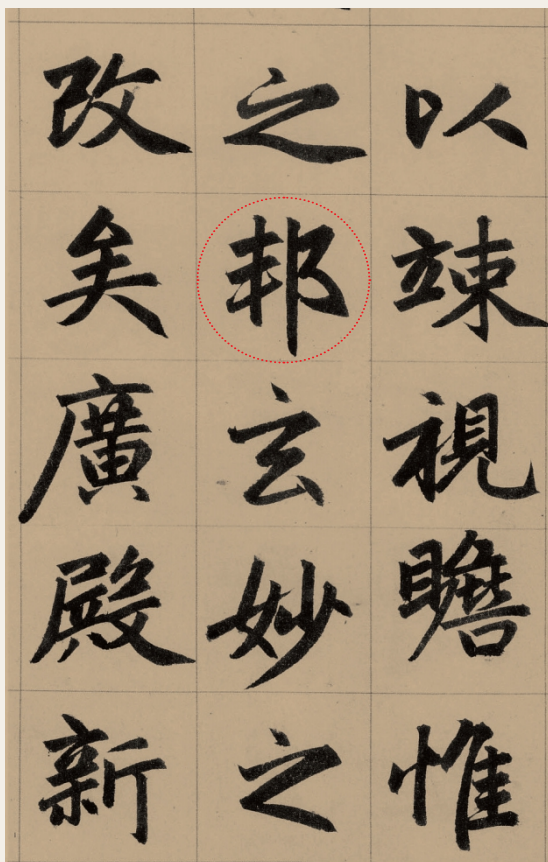 以竦視瞻惟
之邦玄妙之
改矣廣殿新